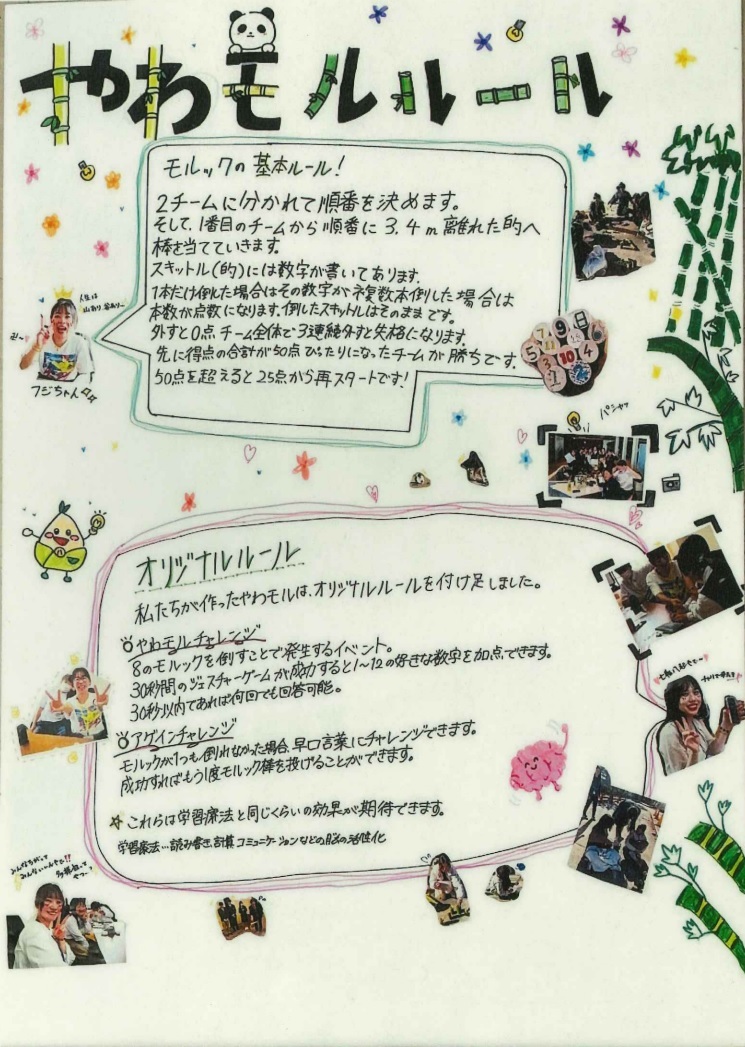 やわモルルール
モルックの基本ルール!
2チームに分かれて順番を決めます。
そして、1番目のチームから順番に3.4m離れた的へ
棒を当てていきます。
スキットル(的)には数字が書いてあります。
1本だけ倒した場合はその数字が複数本倒した場合は
本数が点数になります。倒したスキットルはそのままです。
外すと0点。チーム全体で3連続外すと失格になります。
先に得点の合計が50点ぴったりになったチームが勝ちです。
50点を超えると25点から再スタートです!
人生は
山あり谷あり〜
フジちゃん
パシャッ
オリジナルルール
私たちが作ったやわモルは、オリジナルルールを付け足しました。
やわモルチャレンジ
8のモルックを倒すことで発生するイベント。
30秒間のジェスチャーゲームが成功すると1〜12の好きな数字を加点できます。
30秒以内であれば何回でも回答可能。
アゲインチャレンジ
モルックが1つも倒れなかった場合、早口言葉にチャレンジできます。
成功すればもう1度モルック棒を投げることができます。
☆これらは学習療法と同じくらいの効果が期待できます。
学習療法…読み書き、計算、コミュニケーションなどの脳の活性化
みんなちがって
みんないい